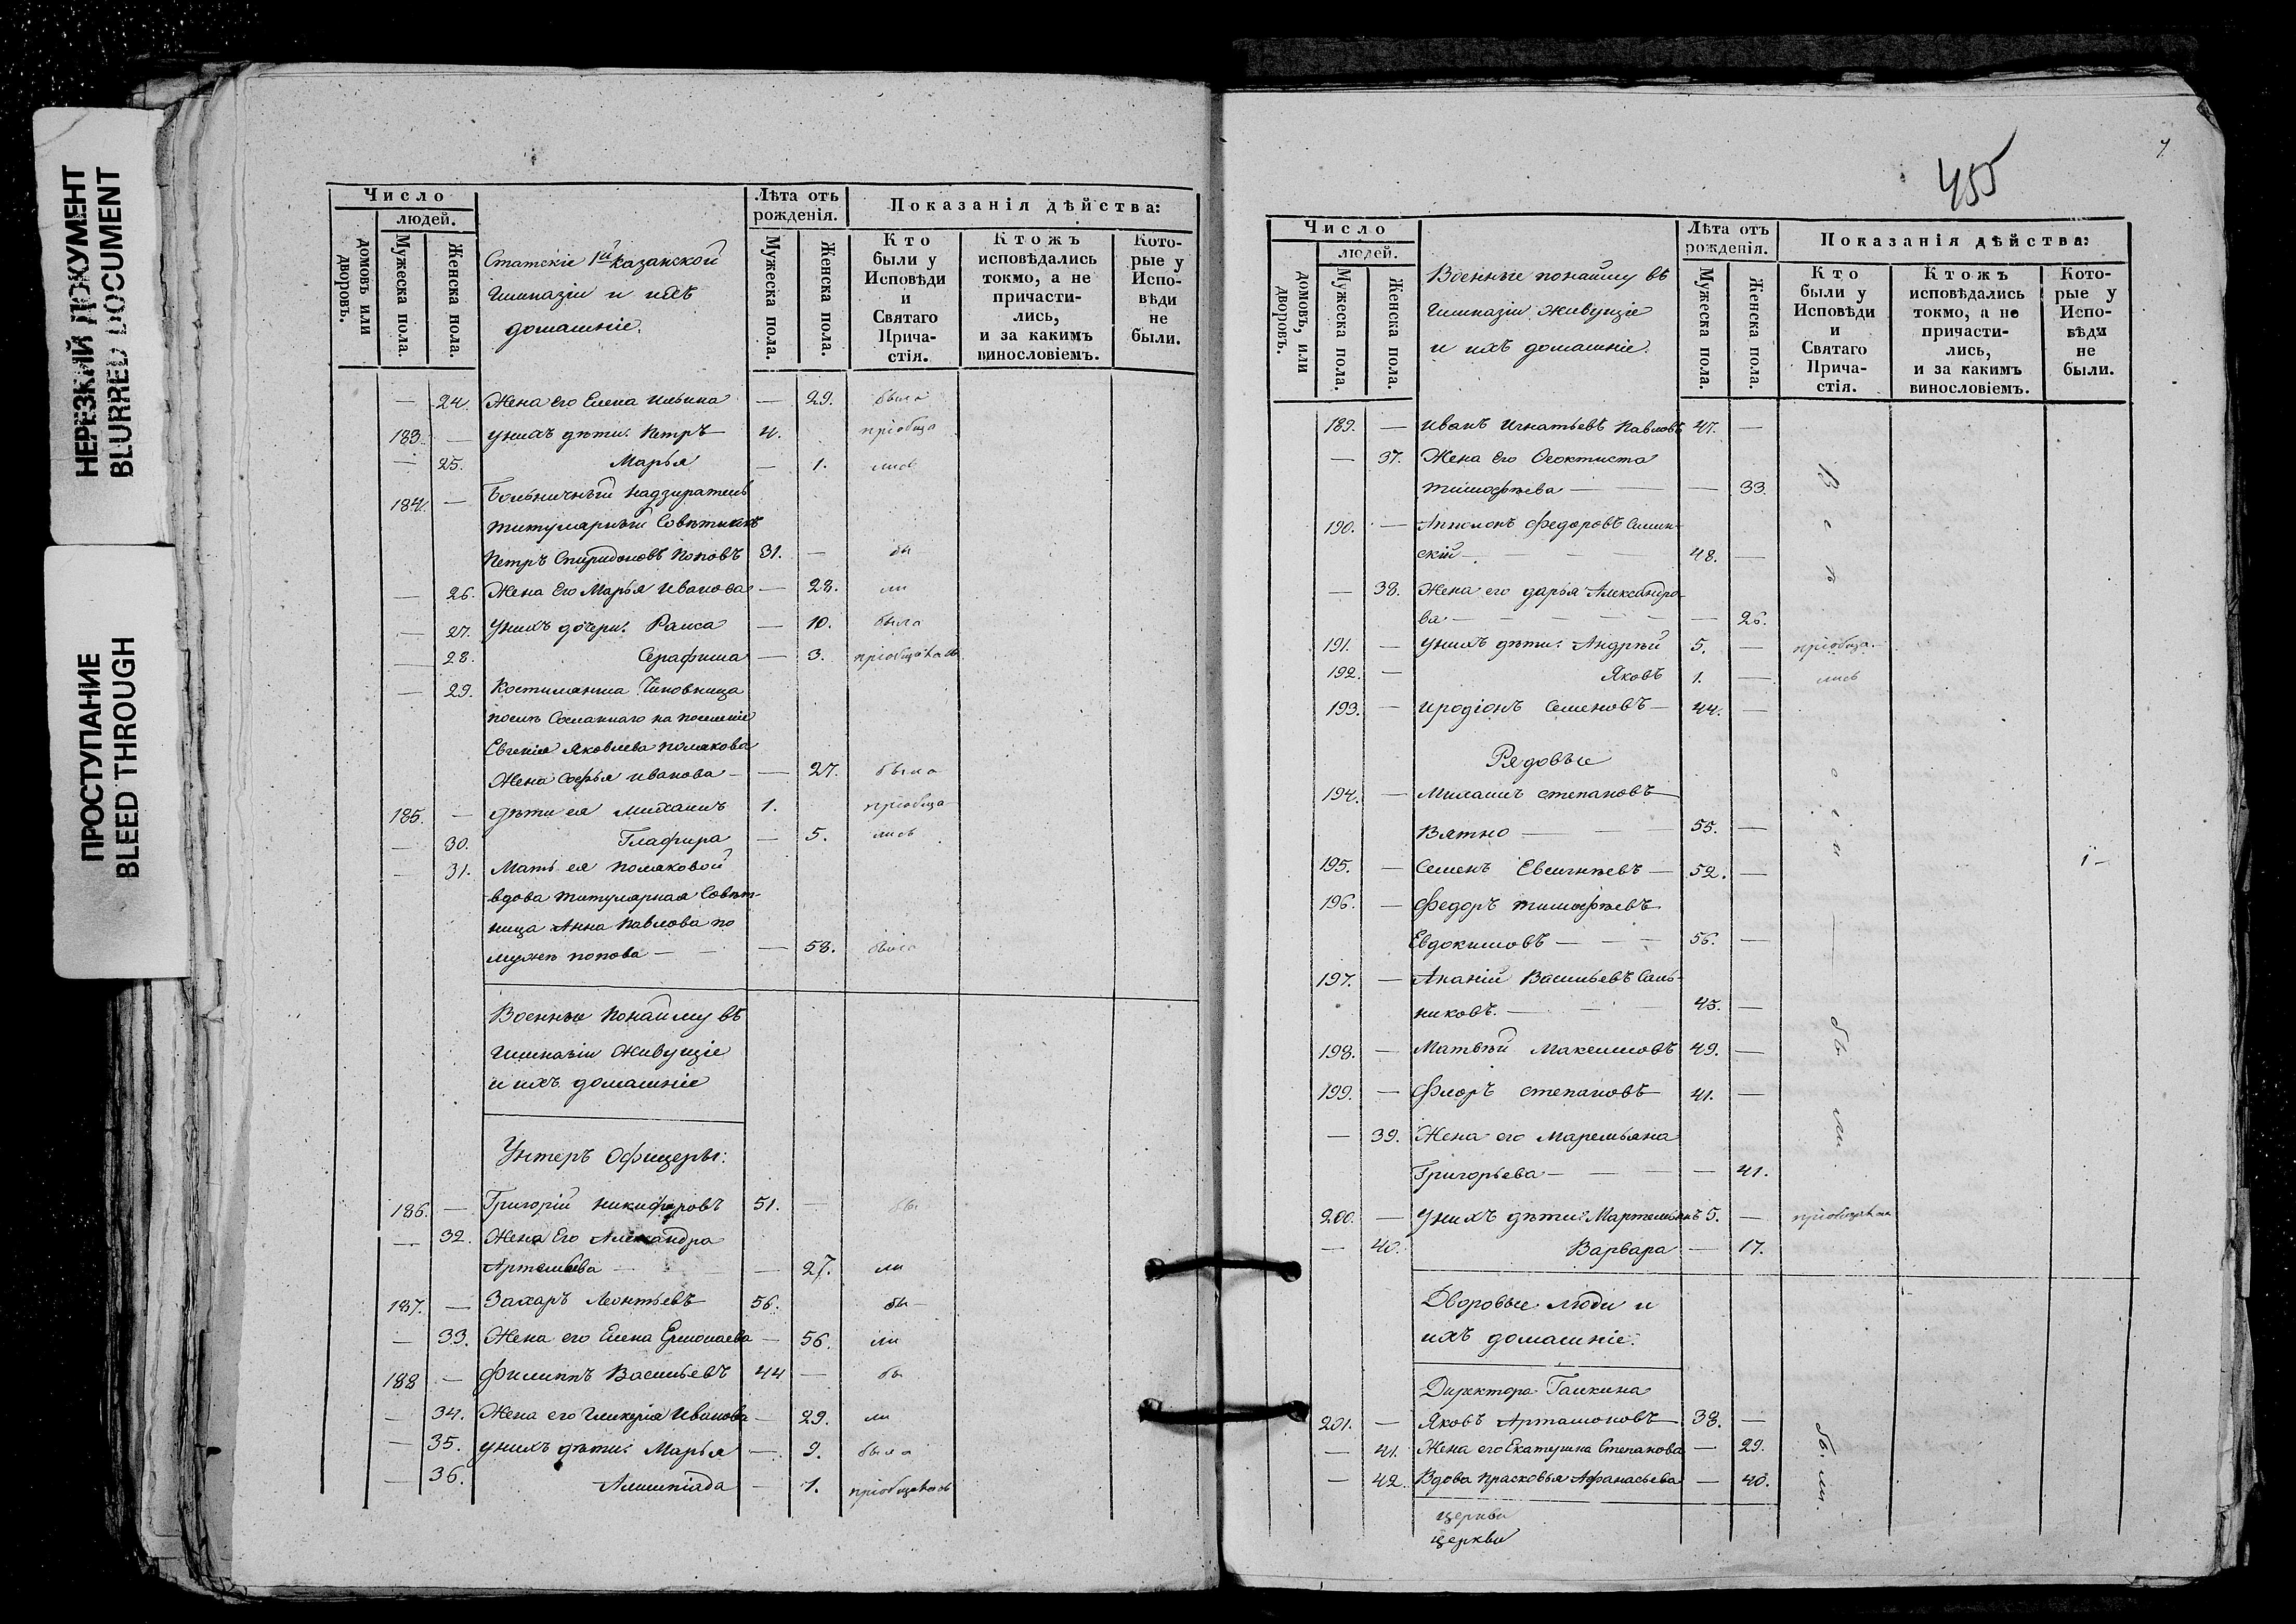 НЕРЕЗКИЙ ДОКУМЕНТ
BLURRED DOCUMENT
ПРОСТУПАНИЕ
BLEED THROUGH
Число
людей.
домовъ или дворовъ.
Мужеска пола.
Женска пола.
Статскіе 1й Казанской
Гимназіи и ихъ
домашніе.
Лѣта отъ рожденія.
Мужеска пола.
Женска пола.
Показанія дѣйства:
Кто были у Исповѣди и Святаго Прича-стія.
Ктожъ исповѣдались токмо, а не причасти-лись, и за какимъ винословіемъ.
Кото-рые у Испо-вѣди не были.
— 24. Жена его Елена Ильина — 29. была
183. — у нихъ дѣти: Петръ 4. пріобща
— 25. Марья — 1. лись
184. — Больничный надзиратель
титулярный Совѣтникъ
Петръ Спиридоновъ Поповъ 31. — бы
— 26. Жена Его Марья Иванова — 28. ли
— 27. У нихъ дочери: Раиса — 10. была
— 28. Серафима — 3. пріобщалась
— 29. Костилянша Чиновница
послѣ Сосланнаго на поселеніе
Евгенія Яковлева Полякова
Жена Софья Иванова — — 27. была
185. — дѣти ея Михаилъ 1. пріобща
— 30. Глафира — 5. лись
— 31. Мать ея Поляковой
вдова титулярная Совѣт-
ница Анна Павлова по
мужѣ Попова — — 58. была
Военные Понайму въ
Гимназіи Живущіе
и ихъ домашніе
Унтеръ Офицеры:
186. — Григорій Никифоровъ 51. — бы
— 32. Жена Его Александра
Артемьева — — 27. ли
187. — Захаръ Леонтьевъ 56. бы
— 33. Жена его Елена Ермолаева — 56. ли
188 — Филиппъ Васильевъ 44 — бы
— 34. Жена его Гликерія Иванова — 29. ли
— 35. у нихъ дѣти: Марья — 9. была
— 36. Алимпіада — 1. пріобщалась
455
Число
людей.
домовъ, или дворовъ.
Мужеска пола.
Женска пола.
Военные понайму въ
Гимназіи Живущіе
и ихъ домашніе.
Лѣта отъ рожденія.
Мужеска пола.
Женска пола.
Показанія дѣйства:
Кто были у Исповѣди и Святаго Прича-стія.
Ктожъ исповѣдались токмо, а не причасти-лись, и за какимъ винословіемъ.
Кото-рые у Испо-вѣди не были.
189. — Иванъ Игнатьевъ Павловъ 47. —
— 37. Жена Его Ѳеоктиста
Тимофѣева — — 33.
190. — Апполонъ Федоровъ
скій — 48. —
— 38. Жена его Дарья Александро-
ва — — 26.
191. — У нихъ дѣти: Андрей 5. — пріобща-
192. — Яковъ 1. — лись
193. — Иродіонъ Семеновъ — 44. —
Рядовые
194. — Михаилъ Степановъ
55. —
195. — Семенъ Евсигнѣевъ — 52. — 1 —
196. — Федоръ Тимофѣевъ
Евдокимовъ — 56. —
197. — Ананій Васильевъ Саль-
никовъ. — 45. —
198. — Матвѣй Максимовъ 49. —
199. — Флоръ Степановъ 41. —
— 39. Жена его Маремьяна
Григорьева — — 41.
бы
ли.
200. — У нихъ дѣти: Мартемьянъ 5. — пріобщался
— 40. Варвара — 17.
Дворовые люди и
ихъ домашніе:
Директора Галкина
201. — Яковъ Артамоновъ 38. —
— 41. Жена его Екатерина Степанова — 29.
— 42. Вдова Прасковья Афанасьева — 40.
бы
ли.
Церкви
Церкви